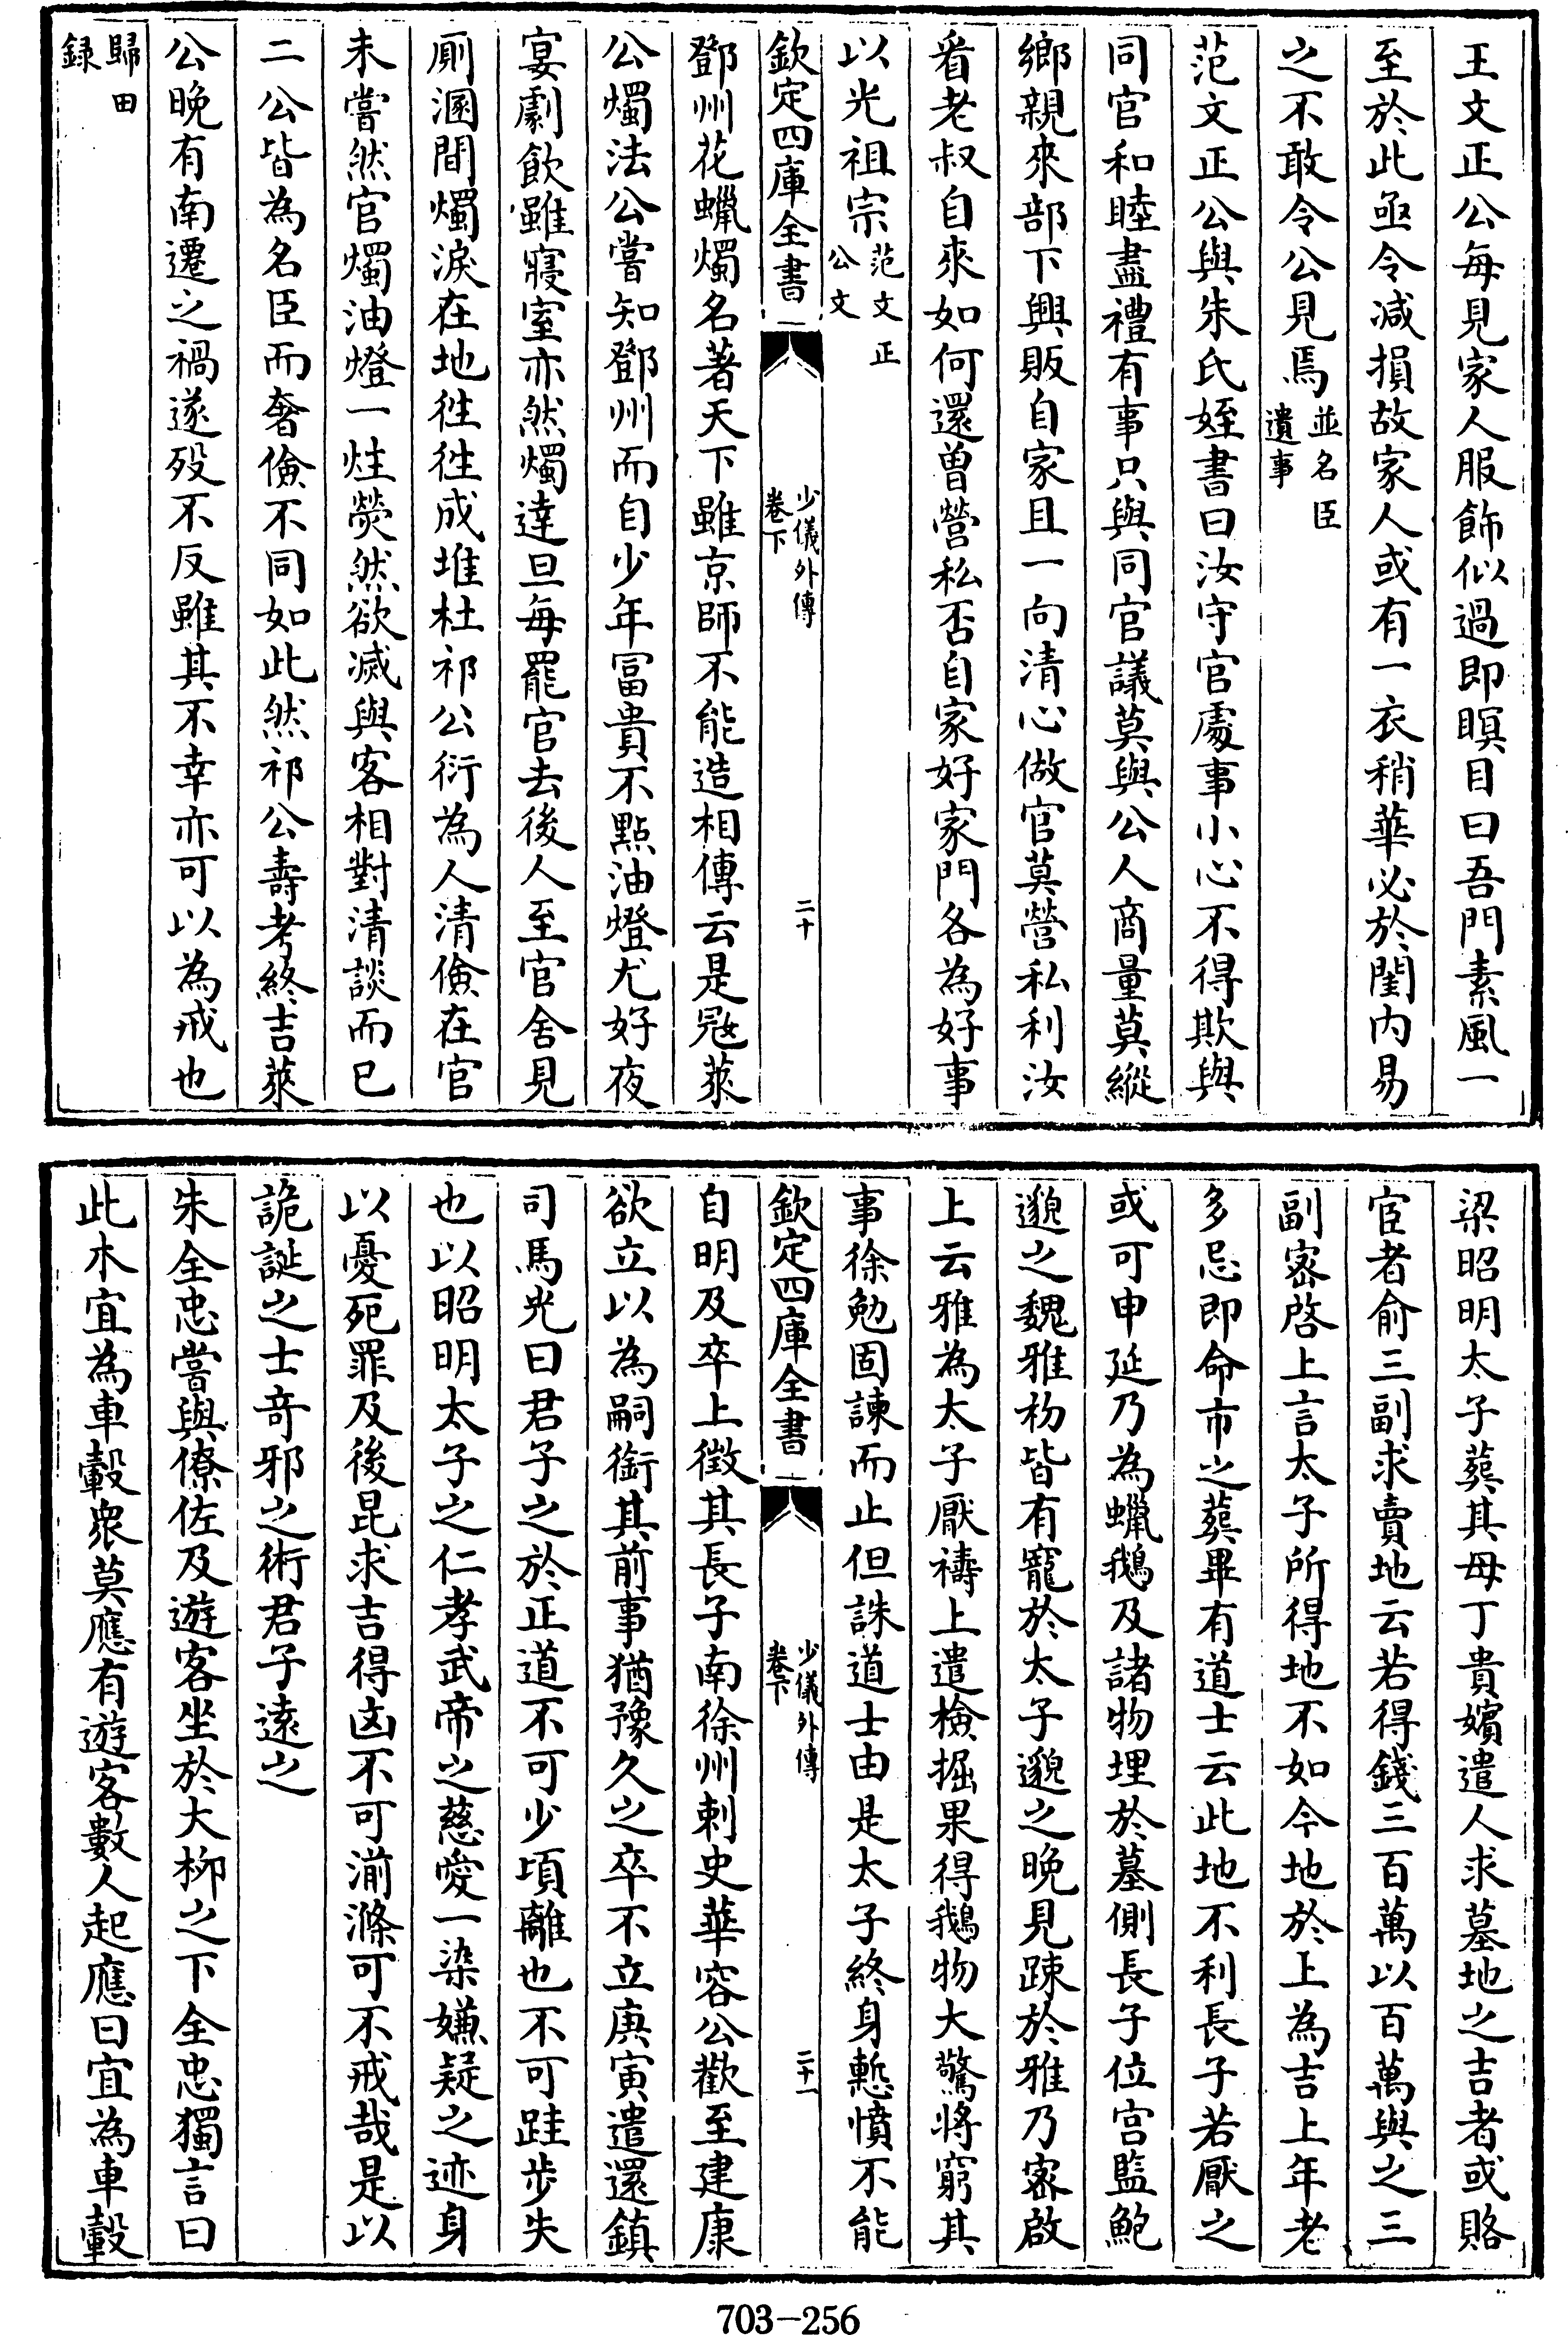 王文正公每見家人服飾似過即瞑目曰吾門素風一
至於此亟令減損故家人或有一衣稍華必於閨内易
之不敢令公見焉並名臣
遺事
范文正公與朱氏姪書曰汝守官處事小心不得欺與
同官和睦盡禮有事只與同官議莫與公人商量莫縱
鄉親來部下興販自家且一向清心做官莫營私利汝
看老叔自來如何還曽營私否自家好家門各為好事
以光祖宗范文正
公文
欽定四庫全書
少儀外傳
卷下
二十
鄧州花蠟燭名著天下雖京師不能造相傳云是冦萊
公燭法公嘗知鄧州而自少年冨貴不點油燈尤好夜
宴劇飲雖寢室亦然燭達旦每罷官去後人至官舍見
厠溷間燭淚在地徃徃成堆杜祁公衍為人清儉在官
未嘗然官燭油燈一炷熒然欲滅與客相對清談而已
二公皆為名臣而奢儉不同如此然祁公壽考終吉萊
公晚有南遷之禍遂殁不反雖其不幸亦可以為戒也
歸田
録
梁昭明太子葬其母丁貴嬪遣人求墓地之吉者或賂
宦者俞三副求賣地云若得錢三百萬以百萬與之三
副宻啓上言太子所得地不如今地於上為吉上年老
多忌即命市之葬畢有道士云此地不利長子若厭之
或可申延乃為蠟鵝及諸物埋於墓側長子位宫監鮑
邈之魏雅初皆有寵於太子邈之晩見踈於雅乃宻啟
上云雅為太子厭禱上遣檢掘果得鵝物大驚将窮其
事徐勉固諫而止但誅道士由是太子終身慙憤不能
欽定四庫全書
少儀外傳
卷下
二十一
自明及卒上徴其長子南徐州刺史華容公歡至建康
欲立以為嗣銜其前事猶豫久之卒不立庚寅遣還鎮
司馬光曰君子之於正道不可少頃離也不可跬步失
也以昭明太子之仁孝武帝之慈愛一染嫌疑之迹身
以憂死罪及後昆求吉得凶不可湔滌可不戒哉是以
詭誕之士奇邪之術君子遠之
朱全忠嘗與僚佐及遊客坐於大栁之下全忠獨言曰
此木宜為車轂衆莫應有遊客數人起應曰宜為車轂
703-256